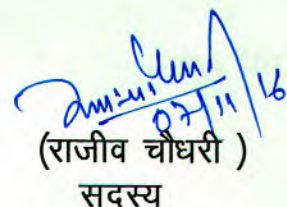 07/11/16
(राजीव चौधरी )
सदस्य